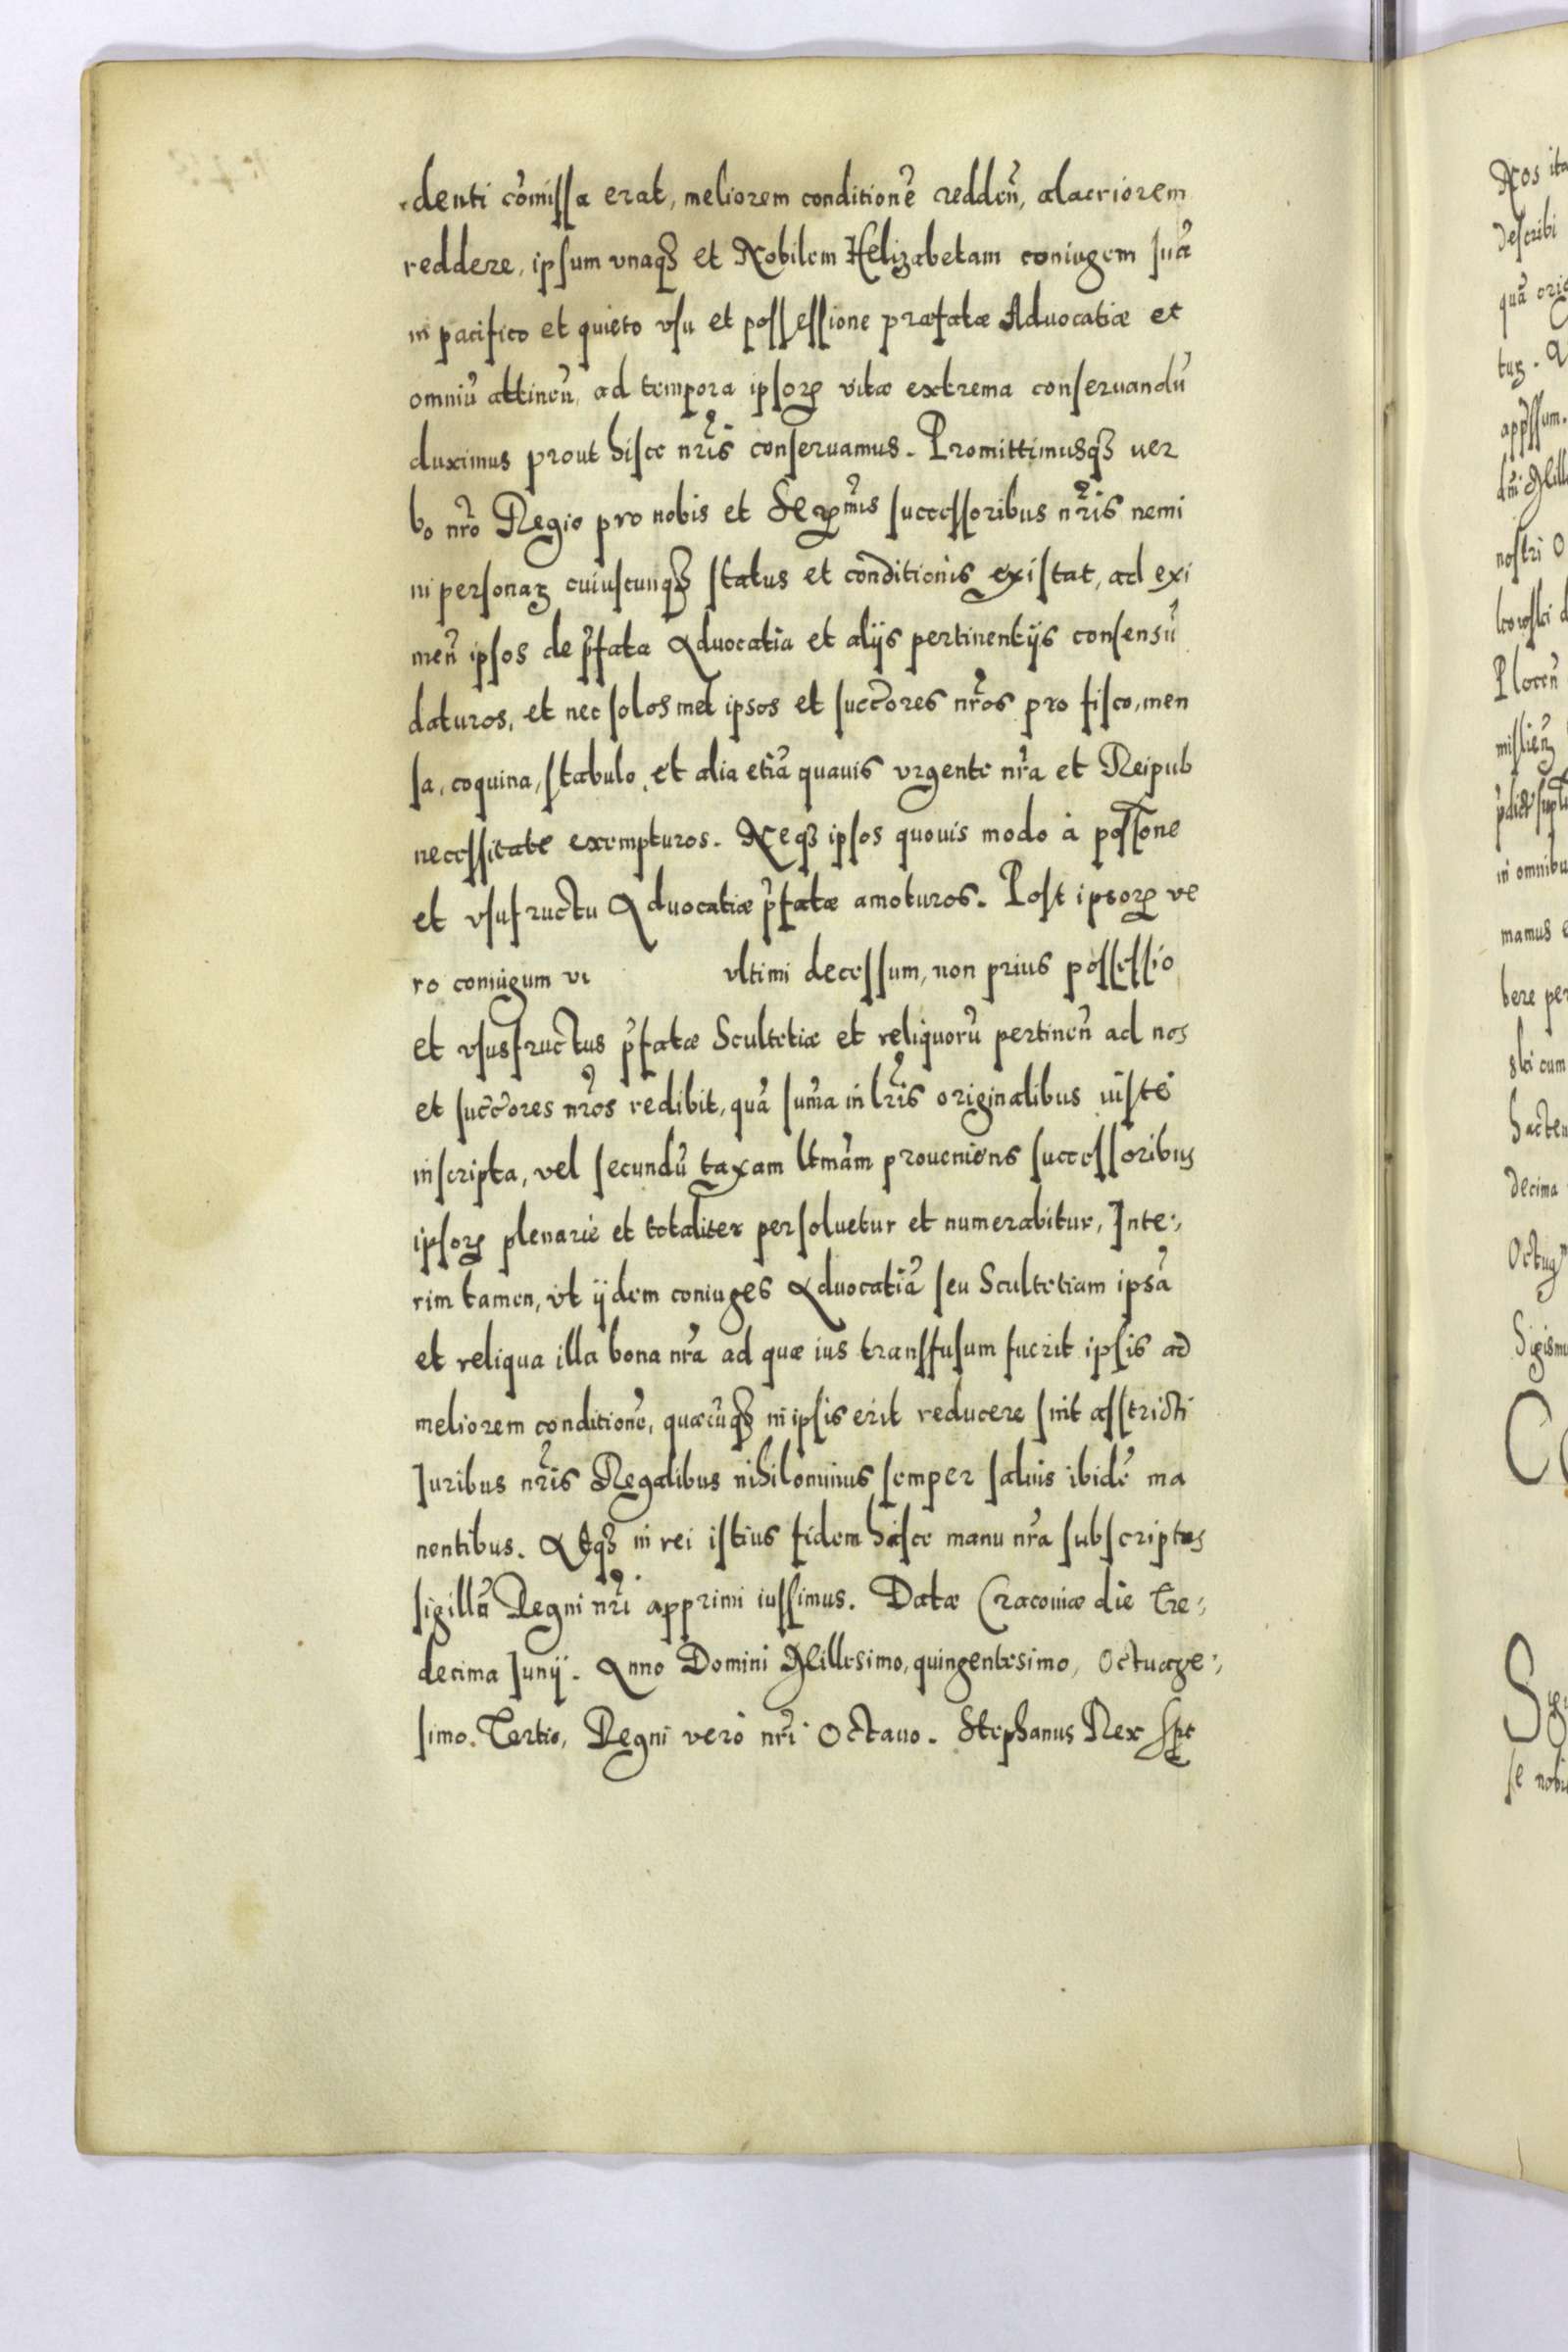 denti com̃issa erat, meliorem conditionẽ redden̄, alacriorem
reddere, ipsum vnaqȝ et Nobilem Helizabetam coniugem suã
in pacifico et quieto vsu et possessione præfatæ Aduocatiæ et
omniũ attinen̄, ad tempora ipsoꝝ vitæ extrema conseruandũ
duximus prout hisce nr̃is conseruamus. Promittimusqȝ ver
bo nr̃o Regio pro nobis et Serꝫᵐⁱˢ successoribus nr̃is nemi
ni personaꝫ cuiuscunqȝ status et conditionis existat, ad exi
men̄ ipsos de p̃fata Aduocatia et alijs pertinentijs consensũ
daturos, et nec solos met ipsos et succ̃ores nr̃os pro fisco, men
sa, coquina, stabulo, et alia etiã quauis vrgente nr̃a et Reipub
necessitate exempturos. Neqȝ ipsos quouis modo à poss̃one
et vsufructu Aduocatiæ p̃fatæ amoturos. Post ipsoꝝ ve
ro coniugum vt vltimi decessum, non prius possessio
et vsusfructus p̃fatæ Scultetiæ et reliquorũ pertinen̄ ad nos
et succ̃ores nr̃os redibit, quã sum̃a in lr̃is originalibus iustè
inscripta, vel secundũ taxam ltmãm proueniens successoribus
ipsoꝝ plenarie et totaliter persoluetur et numerabitur, Inte:,
rim tamen, vt ijdem coniuges Aduocatiã seu Scultetiam ipsã
et reliqua illa bona nr̃a ad quæ ius transfusum fuerit ipsis ad
meliorem conditionẽ, quæcũqȝ in ipsis erit reducere sint asstricti
Juribus nr̃is Regalibus nihilominus semper saluis ibidẽ ma
nentibus. Atqȝ in rei istius fidem hasce manu nr̃a subscriptas
sigillũ Regni nr̃i apprimi iussimus. Datæ Cracouiæ die Tre:,
decima Junij. Anno Domini Millesimo, quingentesimo, Octuage:,
simo. Tertio, Regni verò nr̃i Octauo. Stephanus Rex sßt